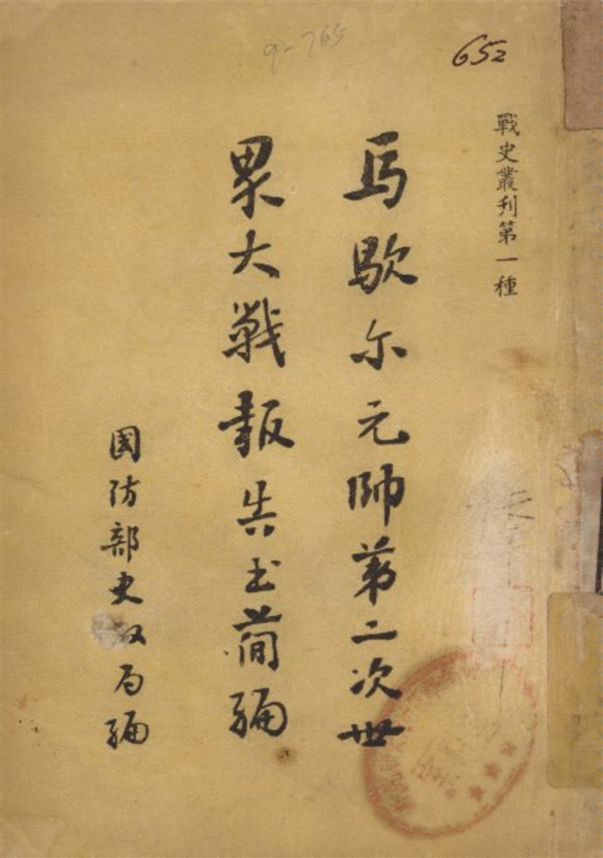 9-765
652
戰史叢刊第一種
馬歇尔元帥苐二次世
界大戦報告书簡編
国防部史政局编